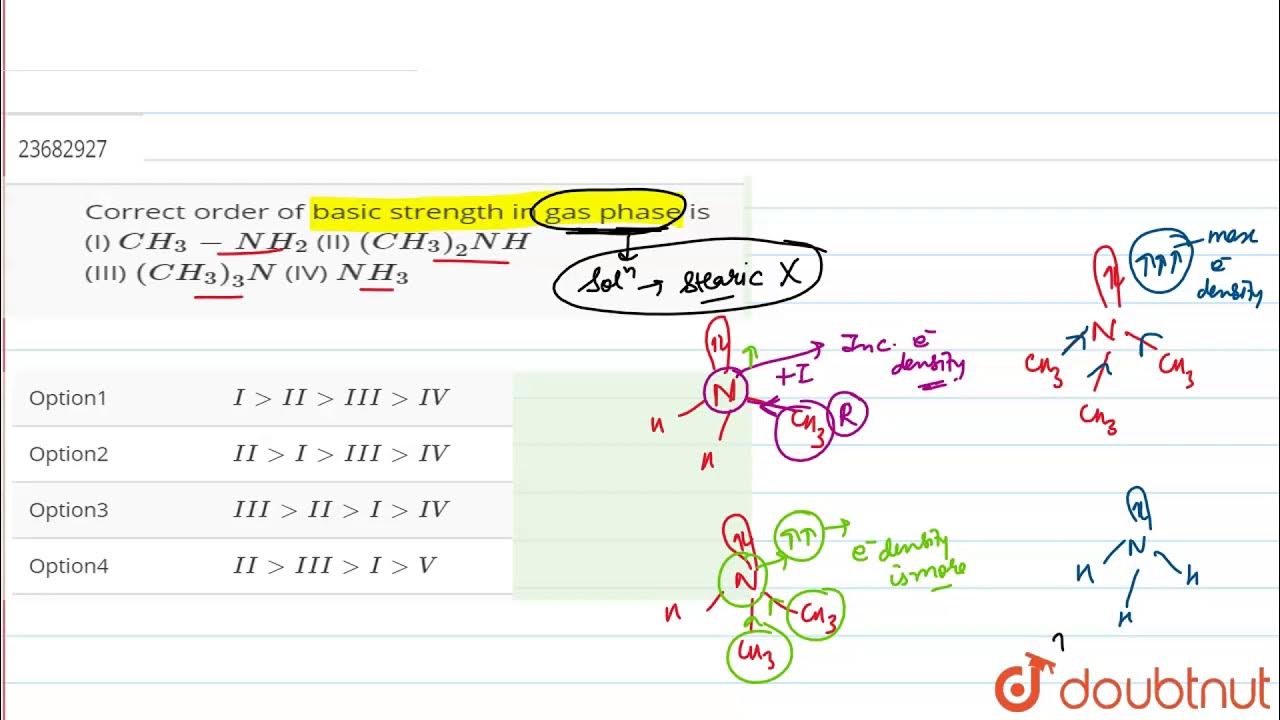 23682927
Correct order of basic strength in gas phase is
(I) CH₃ − NH₂ (II) (CH₃)₂NH
(III) (CH₃)₃N (IV) NH₃
Solⁿ → Stearic X
Option1 I > II > III > IV
Option2 II > I > III > IV
Option3 III > II > I > IV
Option4 II > III > I > V
N
H
H
CH₃
R
+I
Inc. e⁻
density
↑↑↑
max
e⁻
density
N
CH₃
CH₃
CH₃
N
H
CH₃
CH₃
↑↑
e⁻ density
is more
N
H
H
H
doubtnut